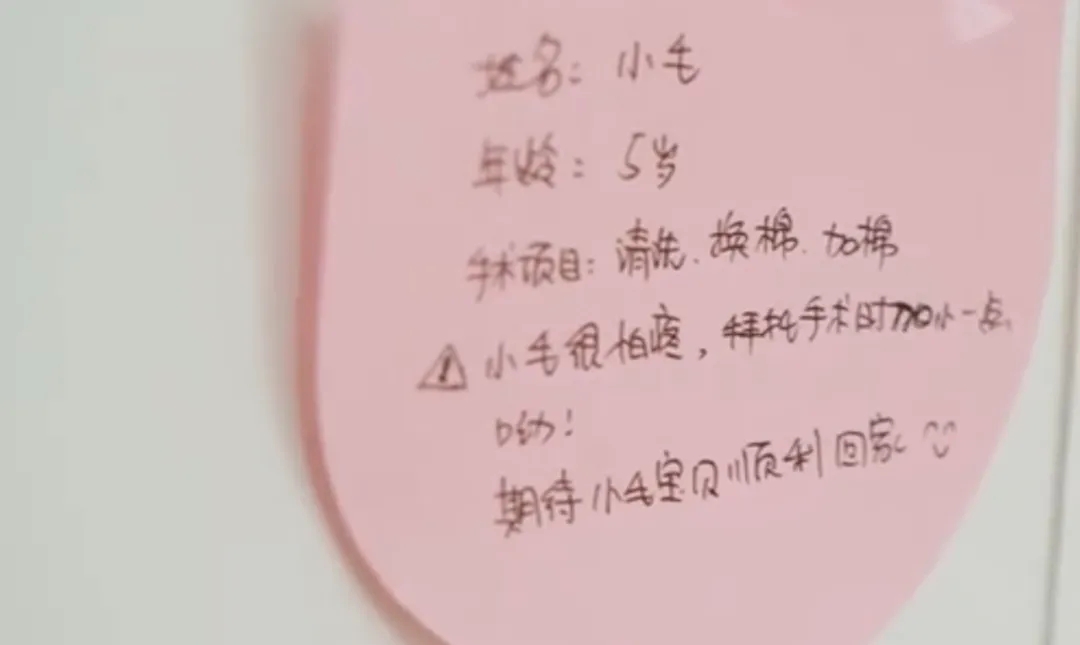 姓名：小毛
年龄：5岁
手术项目：清洗、换棉、加棉
⚠小毛很怕疼，拜托手术时加小一点
呦！
期待小毛宝贝顺利回家